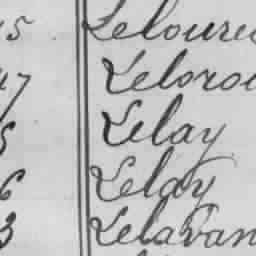 15 Leloure
47 Leloro
5 Lelay
6 Lelay
3 Lelavan